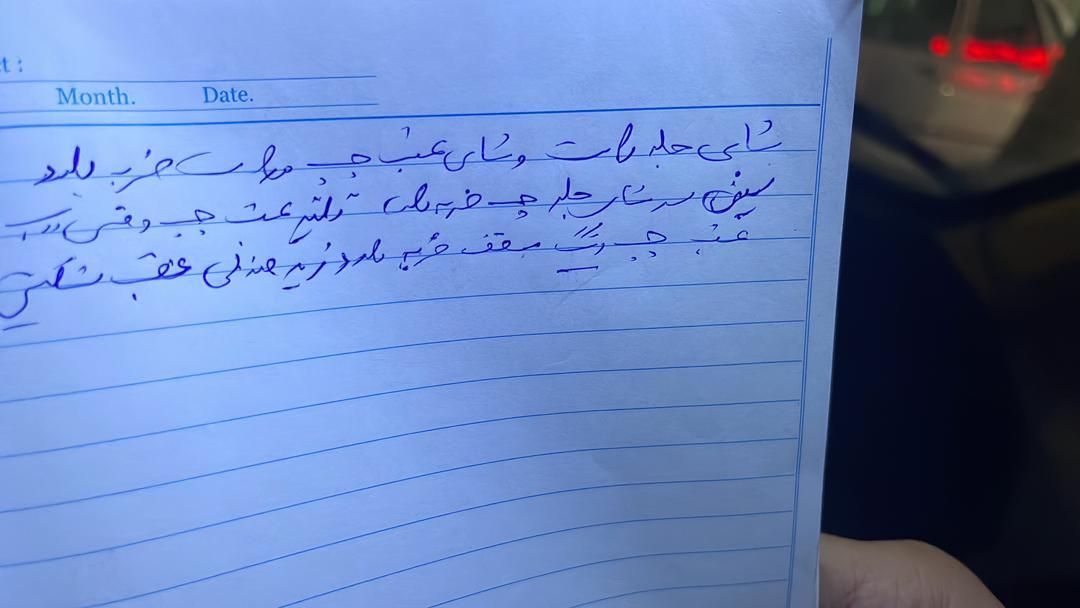 t :
Month. Date.
شاسی جلو راست و شاسی عقب چپ و راست ضربه دارد
سینی سر شاسی جلو چپ ضربه دارد گلگیر عقب چپ و قسمتی
عقب چپ رنگ سقف ضربه دارد زیر صندلی عقب شکستگی